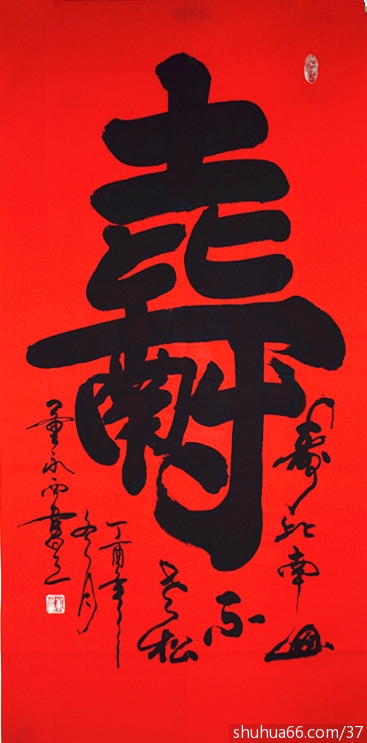 壽
壽比南山
不
老松
丁酉年
冬月
shuhua66.com/37